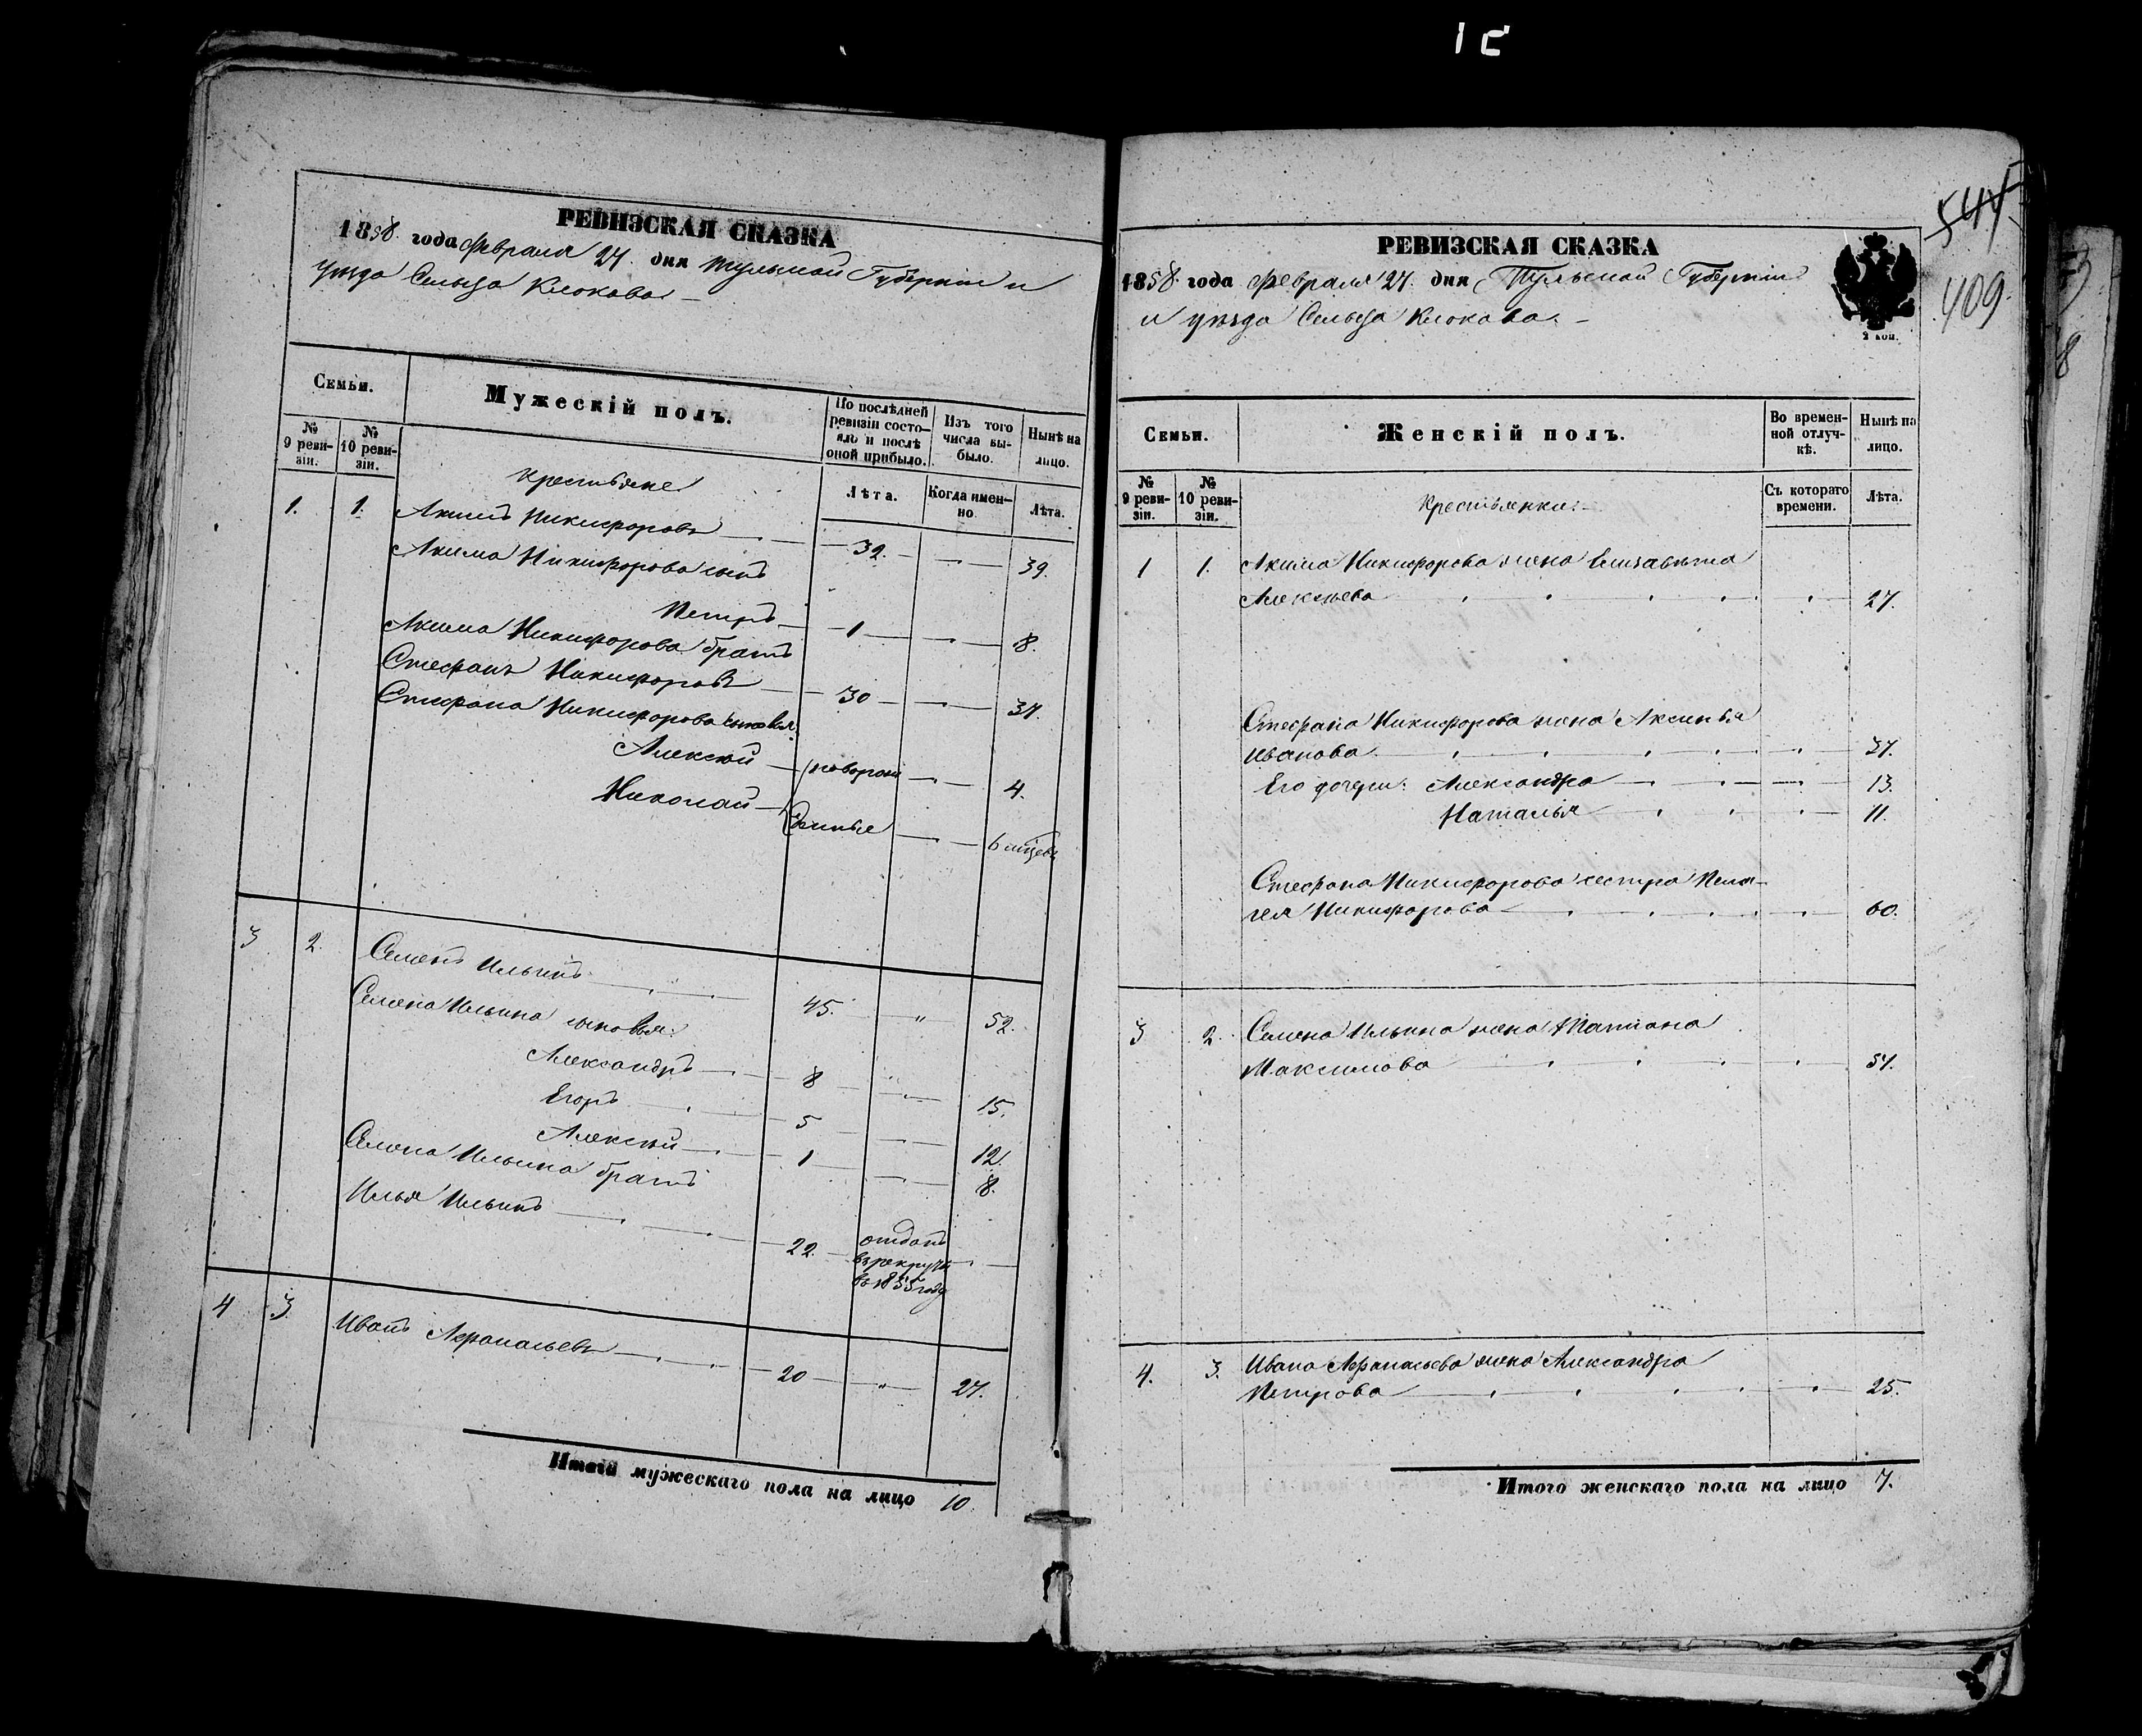 1 с
РЕВИЗСКАЯ СКАЗКА
1858 года Февраля 27 дня Тульской Губерніи и
уѣзда Сельца Клокова
Семьи.
Мужескій полъ.
По послѣдней ревизіи состояло и послѣ оной прибыло.
Изъ того числа выбыло.
Нынѣ на лицо.
№ 9 ревизіи.
№ 10 ревизіи.
Лѣта.
Когда именно
Лѣта.
Крестьяне
1. 1. Акимъ Никифоровъ 32. 39.
Акима Никифорова сынъ
Петръ 1 8.
Акима Никифорова братъ
Стефанъ Никифоровъ 30 37.
Стефана Никифорова сыновья:
Алексѣй новорож 4.
Николай денные 6 мѣсяцевъ
3 2. Семенъ Ильинъ 45. " 52.
Семена Ильина сыновья:
Александръ 8 15.
Егоръ 5 12.
Алексѣй 1 8.
Семена Ильина братъ
Илья Ильинъ 22. отданъ
въ рекруты
въ 1855 году
4 3. Иванъ Афанасьевъ 20 " 27.
Итого мужескаго пола на лицо 10
544
409.
РЕВИЗСКАЯ СКАЗКА
1858 года Февраля 27 дня Тульской Губерніи
и уѣзда Сельца Клокова.
2 коп.
Семьи.
Женскій полъ.
Во временной отлучкѣ.
Нынѣ на лицо.
№ 9 ревизіи.
№ 10 ревизіи.
Съ котораго времени.
Лѣта.
Крестьянки:
1 1. Акима Никифорова жена Елизавѣта
Алексѣева 27.
Стефана Никифорова жена Аксинья
Иванова 37.
Его дочери: Александра 13.
Наталья 11.
Стефана Никифорова сестра Пела-
гея Никифорова 60.
3 2. Семена Ильина жена Татиана
Максимова 57.
4. 3. Ивана Афанасьева жена Александра
Петрова 25.
Итого женскаго пола на лицо 7.